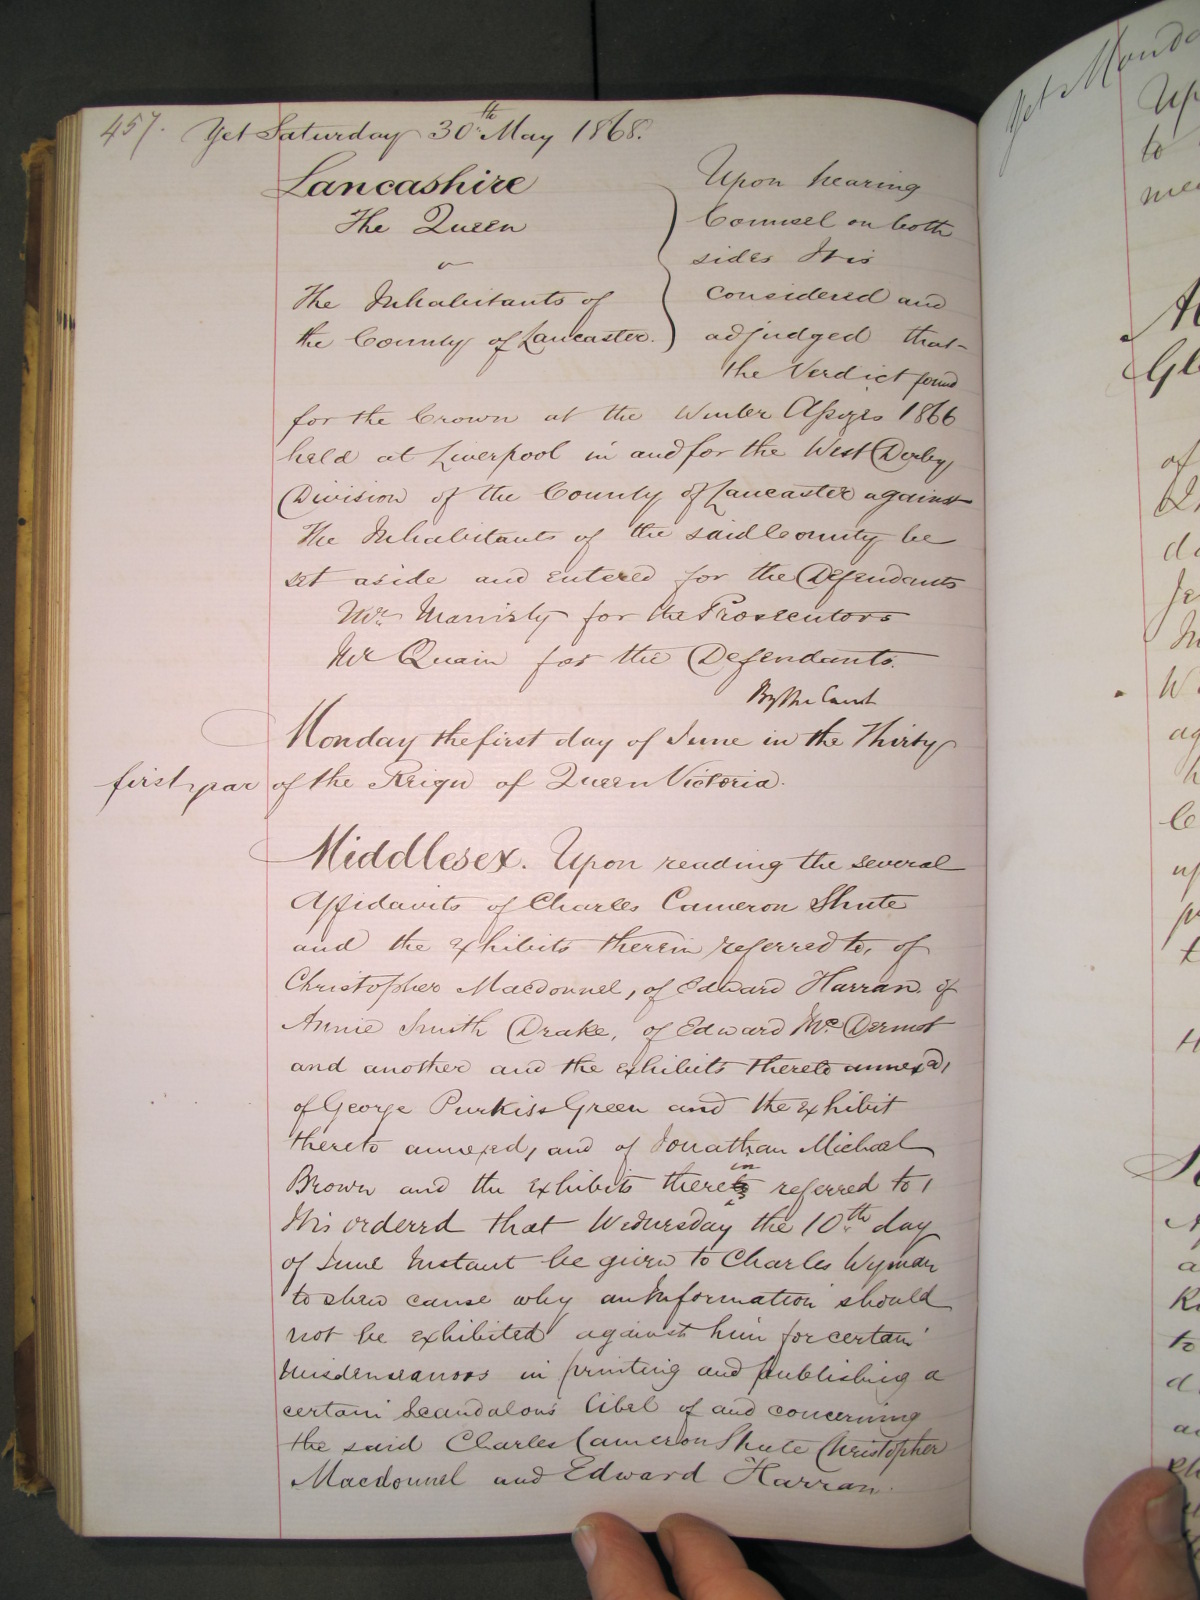 457. Yet Saturday 30th May 1868.
Lancashire
The Queen
v
The Inhabitants of
the County of Lancaster.
Upon hearing
Counsel on both
sides It is
considered and
adjudged that
the Verdict found
for the Crown at the Winter Assizes 1866
held at Liverpool in and for the West Derby
Division of the County of Lancaster against
The Inhabitants of the said County be
set aside and entered for the Defendants
Mr. Manisty for the Prosecutors
Mr Quain for the Defendants.
By the Court
Monday the first day of June in the Thirty
first year of the Reign of Queen Victoria.
Middlesex. Upon reading the several
Affidavits of Charles Cameron Shute
and the exhibits therein referred to, of
Christopher Macdonnel, of Edward Harran, of
Annie Smith Drake, of Edward Mc Dermot
and another and the exhibits thereto annexed,
of George Purkiss Green and the exhibit
thereto annexed, and of Jonathan Michael
Brown and the exhibits therein referred to,
It is ordered that Wednesday the 10th day
of June Instant be given to Charles Wyman
to shew cause why an Information should
not be exhibited against him for certain
Misdemeanors in printing and publishing a
certain Scandalous libel of and concerning
the said Charles Cameron Shute Christopher
Macdonnel and Edward Harran.
Yet Monda
Up
to